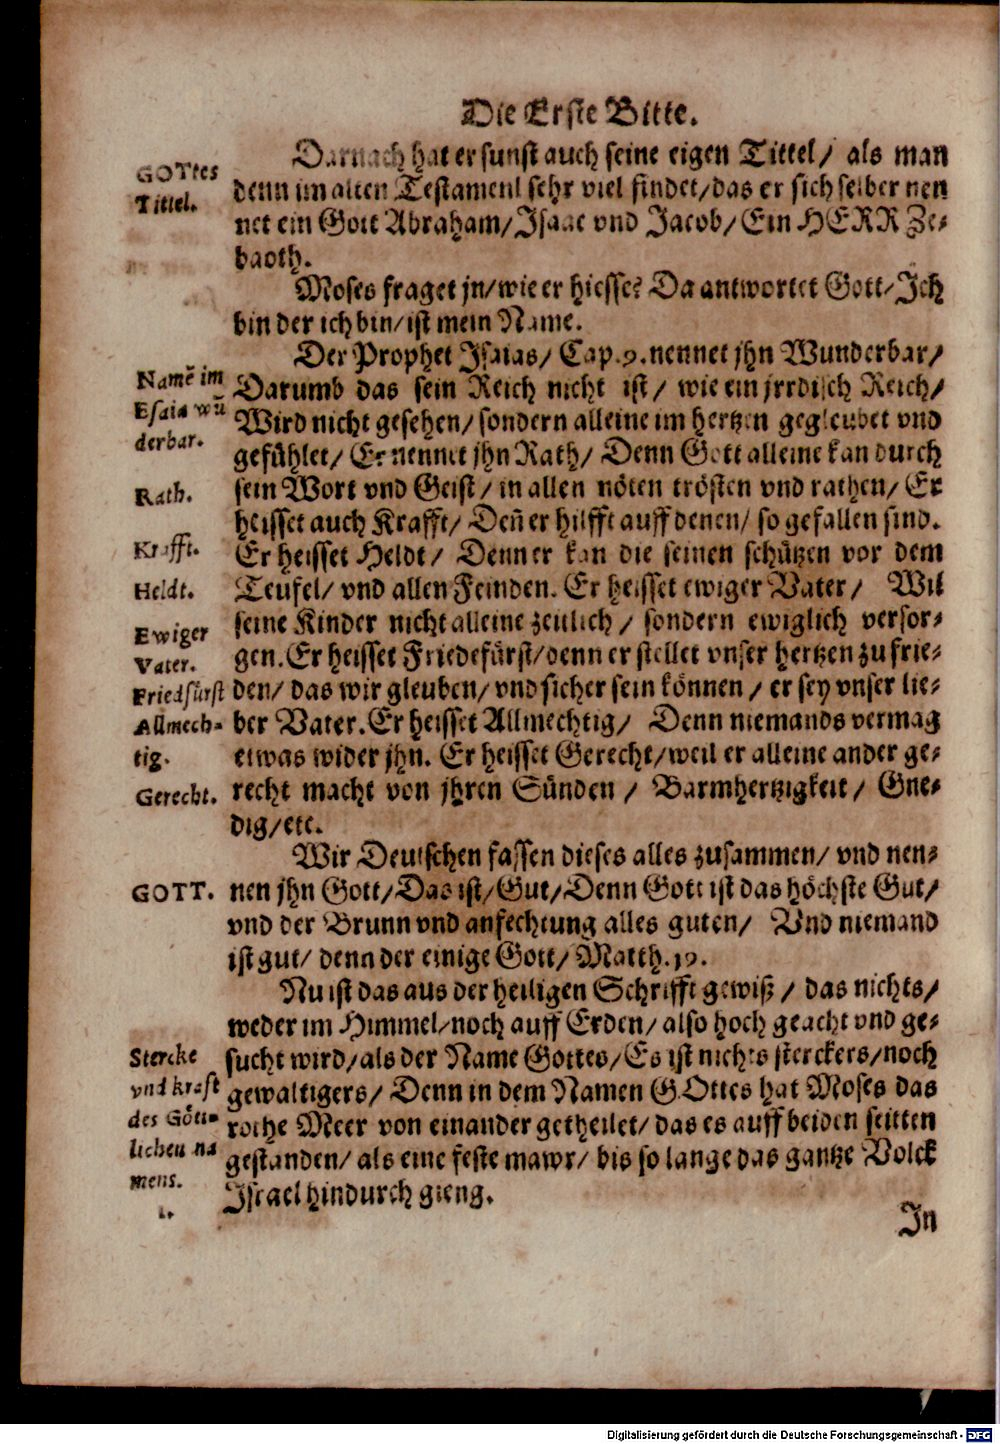 Die Erste Bitte.
Darnach hat er sunst auch seine eigen Tittel/ als man
denn im alten Testament sehr viel findet/das er sich selber nen
net ein Gott Abraham/Isaac vnd Jacob/Ein HERR Ze-
baoth.
GOTtes
Tittel.
Moses fraget jn/wie er hiesse? Da antwortet Gott/Ich
bin der ich bin/ist mein Name.
Der Prophet Isaias/ Cap.9.nennet jhn Wunderbar/
Darumb das sein Reich nicht ist/ wie ein jrrdisch Reich/
Wird nicht gesehen/sondern alleine im hertzen gegleubet vnd
gefühlet/ Er nennet jhn Rath/ Denn Gott alleine kan durch
sein Wort vnd Geist/ in allen nöten trösten vnd rathen/ Er
heisset auch Krafft/ Deñ er hilfft auff denen/ so gefallen sind.
Er heisset Heldt/ Denn er kan die seinen schützen vor dem
Teufel/ vnd allen Feinden. Er heisset ewiger Vater/ Wil
seine Kinder nicht alleine zeitlich/ sondern ewiglich versor-
gen.Er heisset Friedefürst/denn er stellet vnser hertzen zu frie-
den/ das wir gleuben/ vnd sicher sein können/ er sey vnser lie-
ber Vater.Er heisset Allmechtig/ Denn niemands vermag
etwas wider jhn. Er heisset Gerecht/weil er alleine ander ge-
recht macht von jhren Sünden/ Barmhertzigkeit/ Gne-
dig/etc.
Namē im
Esaia wū
derbar.
Rath.
Krafft.
Heldt.
Ewiger
Vater.
Friedfürst
Allmech-
tig.
Gerecht.
Wir Deutschen fassen dieses alles zusammen/ vnd nen-
nen jhn Gott/Das ist/Gut/Denn Gott ist das höchste Gut/
vnd der Brunn vnd anfechtung alles guten/ Vnd niemand
ist gut/ denn der einige Gott/ Matth.19.
GOTT.
Nu ist das aus der heiligen Schrifft gewiß/ das nichts/
weder im Himmel/noch auff Erden/also hoch geacht vnd ge-
sucht wird/als der Name Gottes/Es ist nichts sterckers/noch
gewaltigers/ Denn in dem Namen GOttes hat Moses das
rothe Meer von einander getheilet/das es auff beiden seitten
gestanden/ als eine feste mawr/ bis so lange das gantze Volck
Israel hindurch gieng.
Stercke
vnd kraft
des Gött-
lichen na
mens.
1.
In
Digitalisierung gefördert durch die Deutsche Forschungsgemeinschaft - DFG